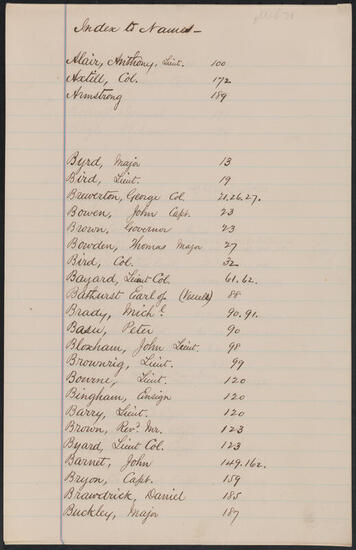 Index to Names -
Alair, Anthony, Lieut. 100
Axtell, Col. 172
Armstrong 189
Byrd, Major 13
Bird, Lieut. 19
Brewerton, George Col. 21.26.27.
Bowen, John Capt. 23
Brown, Governor 23
Bowden, Thomas Major 27
Bird, Col. 32
Bayard, Lieut Col. 61.62.
Bathurst Earl of (Vessells) 88
Brady, Mich.l 90.91.
Basu, Peter 90
Bloxham, John Lieut. 98
Brownrig, Lieut. 99
Bowene, Lieut. 120
Bingham, Ensign 120
Barry, Lieut. 120
Brown, Rev.d Mr. 123
Byard, Lieut Col. 123
Barnet, John 149.162.
Bryon, Capt. 159
Brawdrick, Daniel 185
Buckley, Major 187